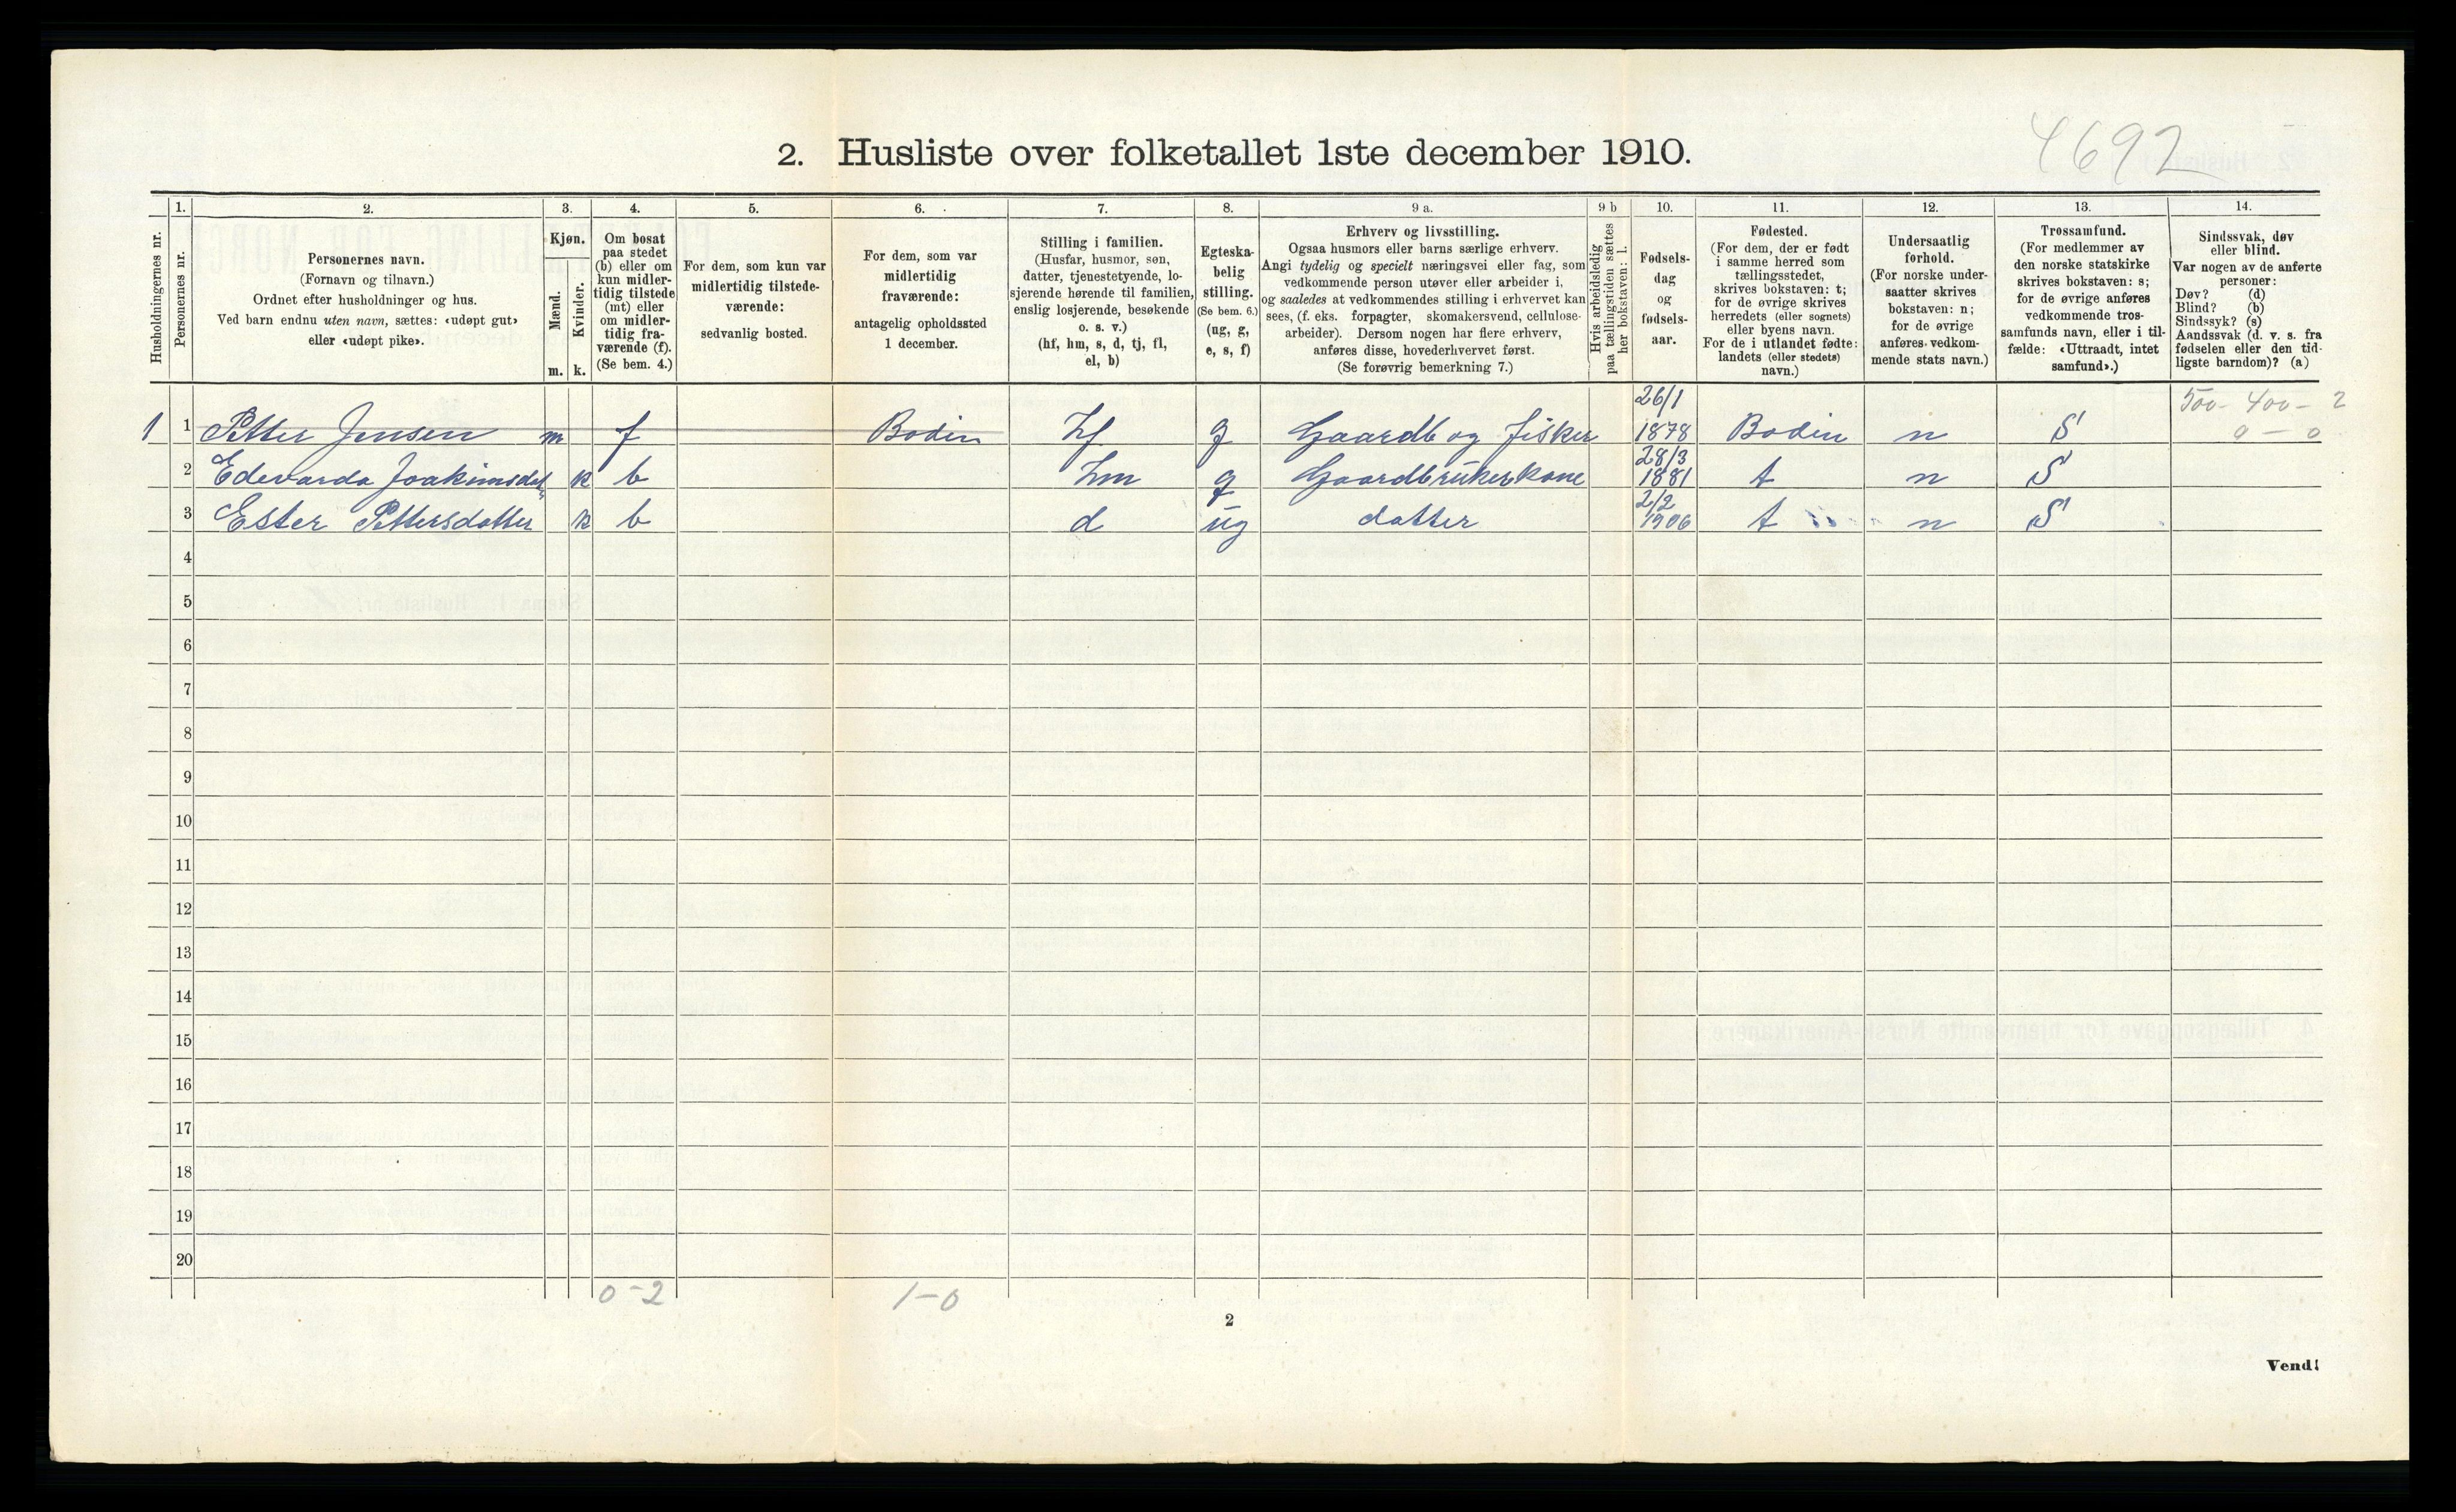 4692
2. Husliste over folketallet 1ste december 1910.
1. 2. 3. 4. 5. 6. 7. 8. 9 a. 9 b 10. 11. 12. 13. 14.
Husholdningernes nr.
Personernes nr.
Personernes navn.
(Fornavn og tilnavn.)
Ordnet efter husholdninger og hus.
Ved barn endnu uten navn, sættes: «udøpt gut»
eller «udøpt pike».
Kjøn.
Mænd.
Kvinder.
m. k.
Om bosat
paa stedet
(b) eller om
kun midler-
tidig tilstede
(mt) eller
om midler-
tidig fra-
værende (f).
(Se bem. 4.)
For dem, som kun var
midlertidig tilstede-
værende:
sedvanlig bosted.
For dem, som var
midlertidig
fraværende:
antagelig opholdssted
1 december.
Stilling i familien.
(Husfar, husmor, søn,
datter, tjenestetyende, lo-
sjerende hørende til familien,
enslig losjerende, besøkende
o. s. v.)
(hf, hm, s, d, tj, fl,
el, b)
Egteska-
belig
stilling.
(Se bem. 6.)
(ug, g,
e, s, f)
Erhverv og livsstilling.
Ogsaa husmors eller barns særlige erhverv.
Angi tydelig og specielt næringsvei eller fag, som
vedkommende person utøver eller arbeider i,
og saaledes at vedkommendes stilling i erhvervet kan
sees, (f. eks. forpagter, skomakersvend, cellulose-
arbeider). Dersom nogen har flere erhverv,
anføres disse, hovederhvervet først.
(Se forøvrig bemerkning 7.)
Hvis arbeidsledig
paa tællingstiden sættes
her bokstaven: l.
Fødsels-
dag
og
fødsels-
aar.
Fødested.
(For dem, der er født
i samme herred som
tællingsstedet,
skrives bokstaven: t;
for de øvrige skrives
herredets (eller sognets)
eller byens navn.
For de i utlandet fødte:
landets (eller stedets)
navn.)
Undersaatlig
forhold.
(For norske under-
saatter skrives
bokstaven: n;
for de øvrige
anføres vedkom-
mende stats navn.)
Trossamfund.
(For medlemmer av
den norske statskirke
skrives bokstaven: s;
for de øvrige anføres
vedkommende tros-
samfunds navn, eller i til-
fælde: «Uttraadt, intet
samfund».)
Sindssvak, døv
eller blind.
Var nogen av de anførte
personer:
Døv? (d)
Blind? (b)
Sindssyk? (s)
Aandssvak (d. v. s. fra
fødselen eller den tid-
ligste barndom)? (a)
26/1 500 - 400 - 2
1 1 Petter Jensen m f Bodin hf g Gaardb og fisker 1878 Bodin n S 0 - 0
28/3
2 Edevarda Joakimsdat k b hm g Gaardbrukerkone 1881 t n S
2/2
3 Ester Pettersdatter k b d ug datter 1906 t n S
4
5
6
7
8
9
10
11
12
13
14
15
16
17
18
19
20
0 - 2 1 - 0
2
Vend!